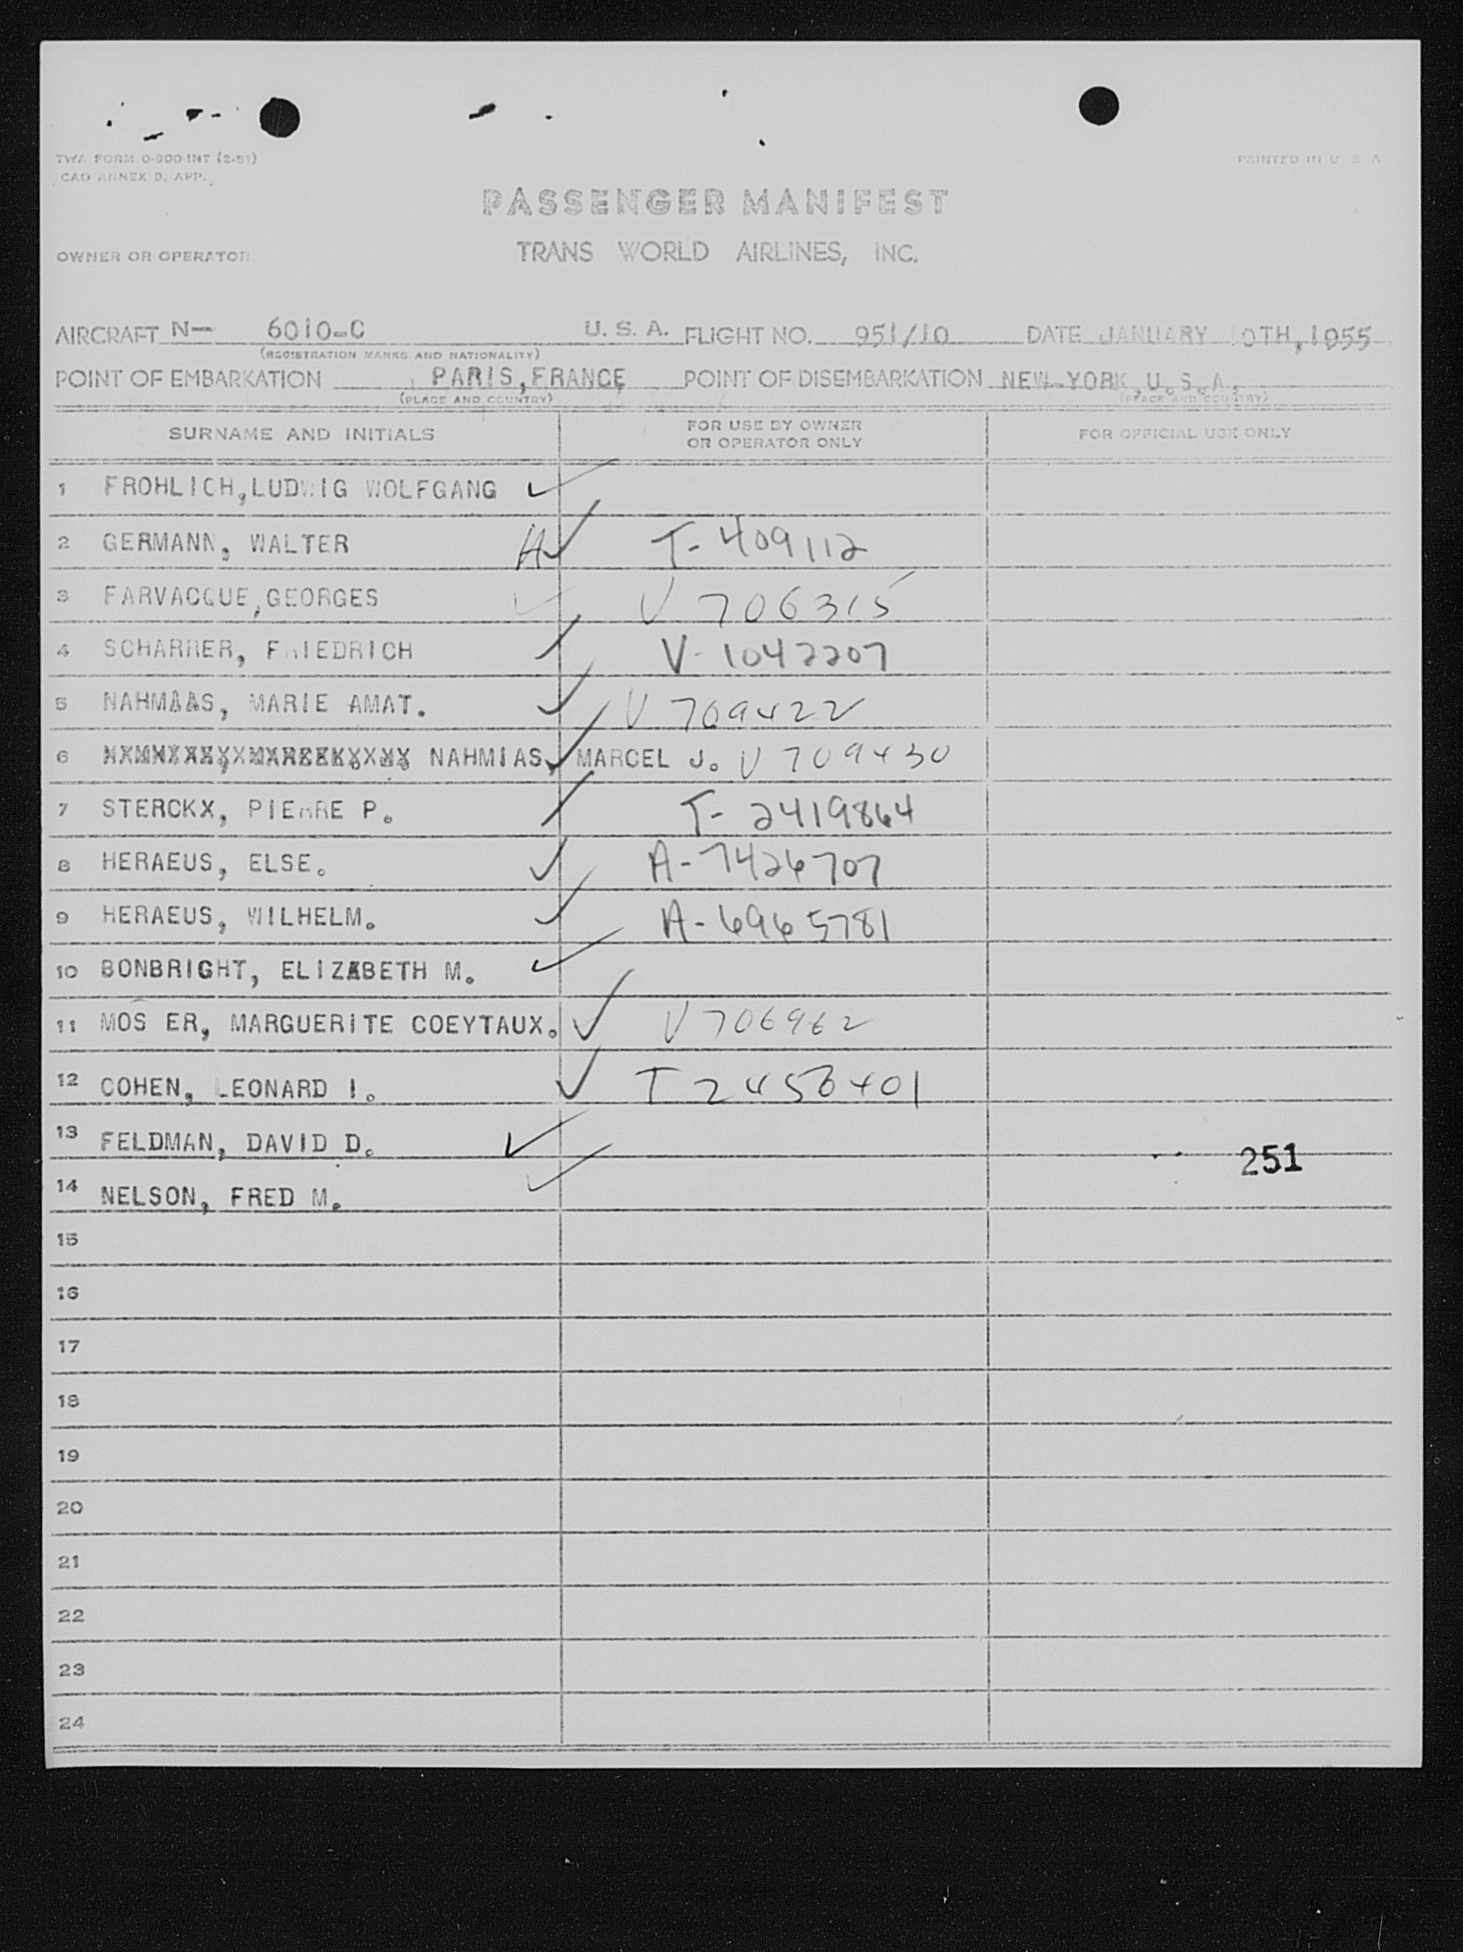 TWA FORM O-900-INT (2-51)
PRINTED IN U. S. A.
CAO ANNEX 9, APP.
PASSENGER MANIFEST
OWNER OR OPERATOR TRANS WORLD AIRLINES, INC.
AIRCRAFT N— 6010-C U. S. A. FLIGHT NO. 951/10 DATE JANUARY 10TH, 1955
(REGISTRATION MARKS AND NATIONALITY)
POINT OF EMBARKATION PARIS, FRANCE POINT OF DISEMBARKATION NEW YORK, U.S.A.
(PLACE AND COUNTRY) (PLACE AND COUNTRY)
SURNAME AND INITIALS FOR USE BY OWNER OR OPERATOR ONLY FOR OFFICIAL USE ONLY
1 FROHLICH, LUDWIG WOLFGANG
2 GERMANN, WALTER A T-409112
3 FARVACQUE, GEORGES V 706315
4 SCHARRER, FRIEDRICH V-1042207
5 NAHMIAS, MARIE AMAT. V 709422
6 NAHMIAS, MARCEL J. V 709430
7 STERCKX, PIERRE P. T-2419864
8 HERAEUS, ELSE. A-7426707
9 HERAEUS, WILHELM. A-6965781
10 BONBRIGHT, ELIZABETH M.
11 MOS ER, MARGUERITE COEYTAUX. V 706962
12 COHEN, LEONARD I. T 2456401
13 FELDMAN, DAVID D.
251
14 NELSON, FRED M.
15
16
17
18
19
20
21
22
23
24